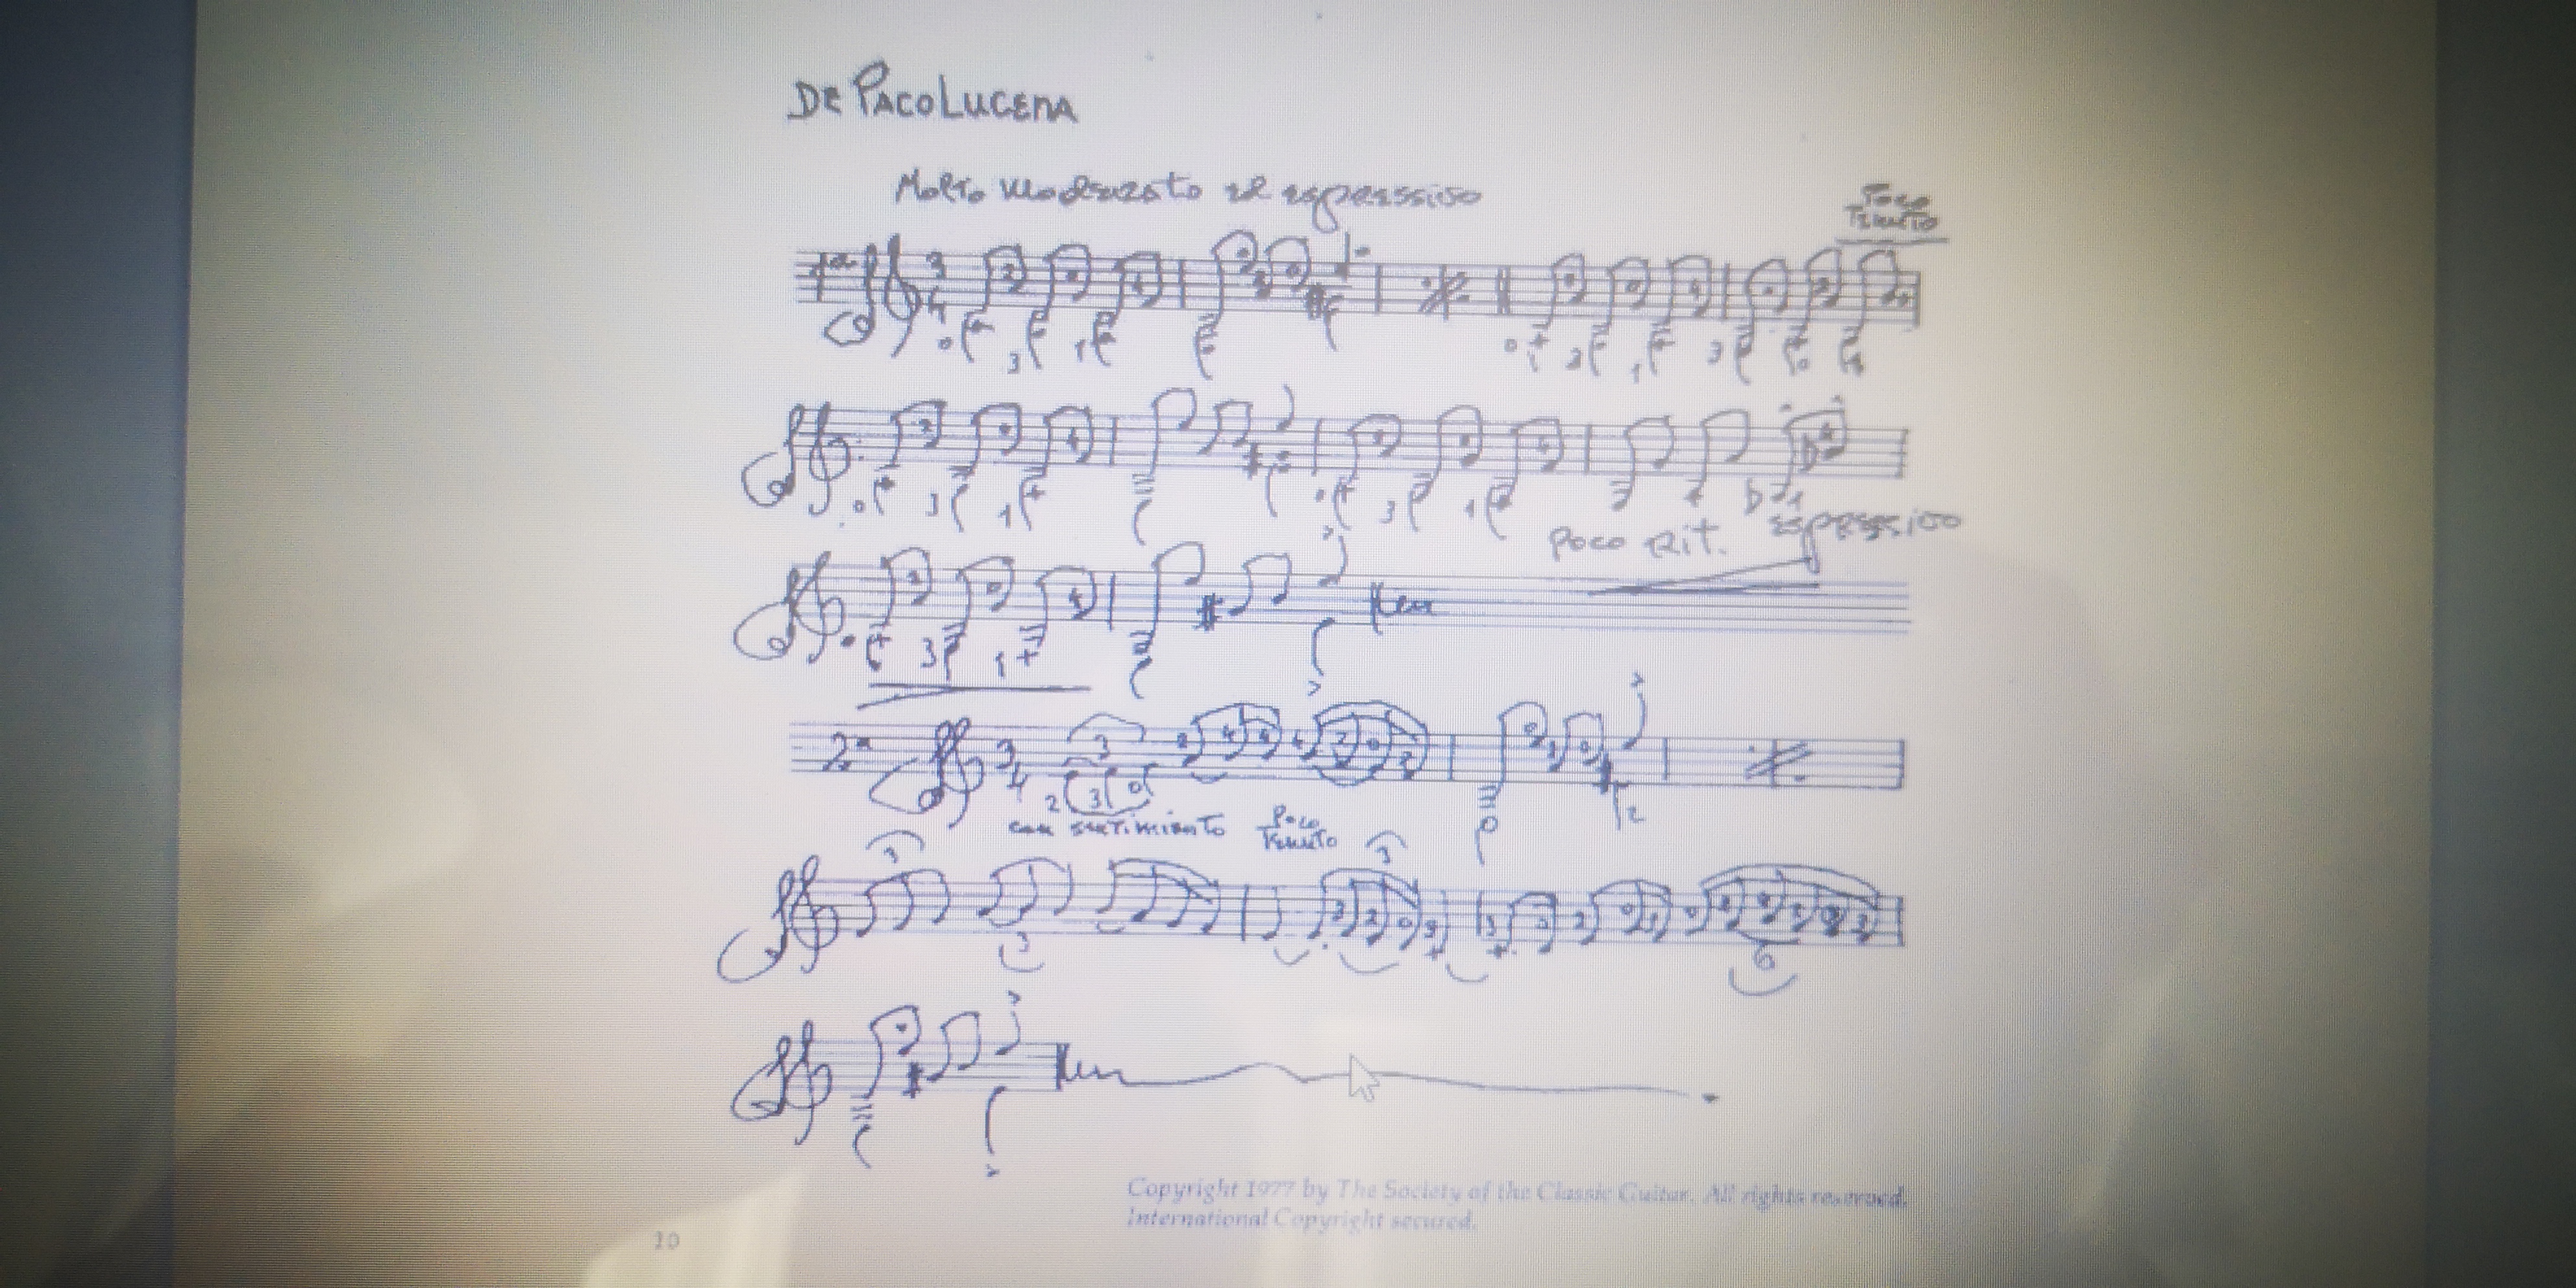 DE PACO LUCENA
Molto moderato ed espressivo
Poco
Tenuto
1ª
Poco rit. espressivo
2ª
con sentimiento Poco
Tenuto
Copyright 1977 by The Society of the Classic Guitar. All rights reserved.
International Copyright secured.
10